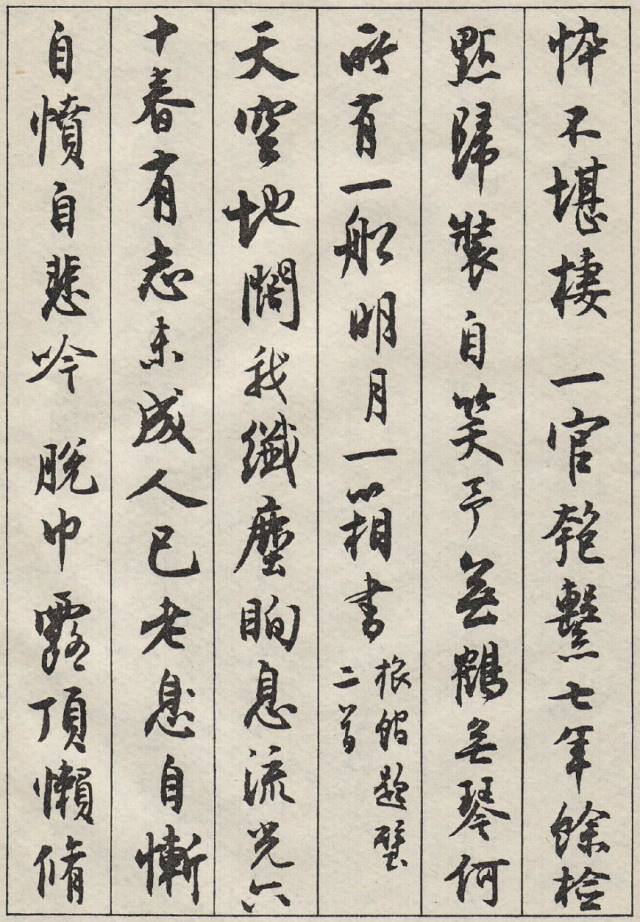 悴不堪棲 一官匏繫七年餘檢
點歸裝自笑予無鶴無琴何
所有一船明月一箱書
旅館題壁
二首
天空地闊我纖塵眴息流光六
十春有志未成人已老息自慚
自憤自悲吟 脫巾露頂懶脩